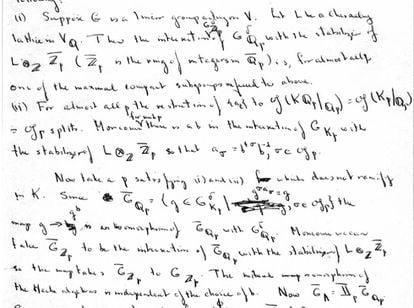 following:
(i) Suppose G is a linear group acting on V. Let L be a Chevalley
lattice in V_Q. Then the intersection of G^δ_{Q_p} with the stabilizer of
L⊗_Z Z̄_p (Z̄_p is the ring of integers in Q̄_p) is, for almost all p
one of the maximal compact subgroups referred to above.
(ii) For almost all p the restriction of {a_σ} to 𝔤(K_{Q_p}/Q_p) = 𝔤(K_p/Q_p)
= 𝔤_p splits. Moreover there is a b in the intersection of G_{K_p} with
the stabilizer of L⊗_Z Z̄_p so that a_σ = b^{σ} b^{-1}, σ ∈ 𝔤_p.
Now take a p satisfying i) and ii) which does not ramify
in K. Since Ḡ_{Q_p} = {g ∈ G_{K_p} | g^{σ a_σ} = g, σ ∈ 𝔤_p} the
map g → g^b is an isomorphism of Ḡ_{Q_p} with G^δ_{Q_p}. Moreover we can
take Ḡ_{Z_p} to be the intersection of Ḡ_{Q_p} with the stabilizer of L⊗_Z Z̄_p
so the map takes Ḡ_{Z_p} to G_{Z_p}. The induced isomorphism of
the Hecke algebras is independent of the choice of b. Now Ḡ_A = ∏_p Ḡ_{Q_p}